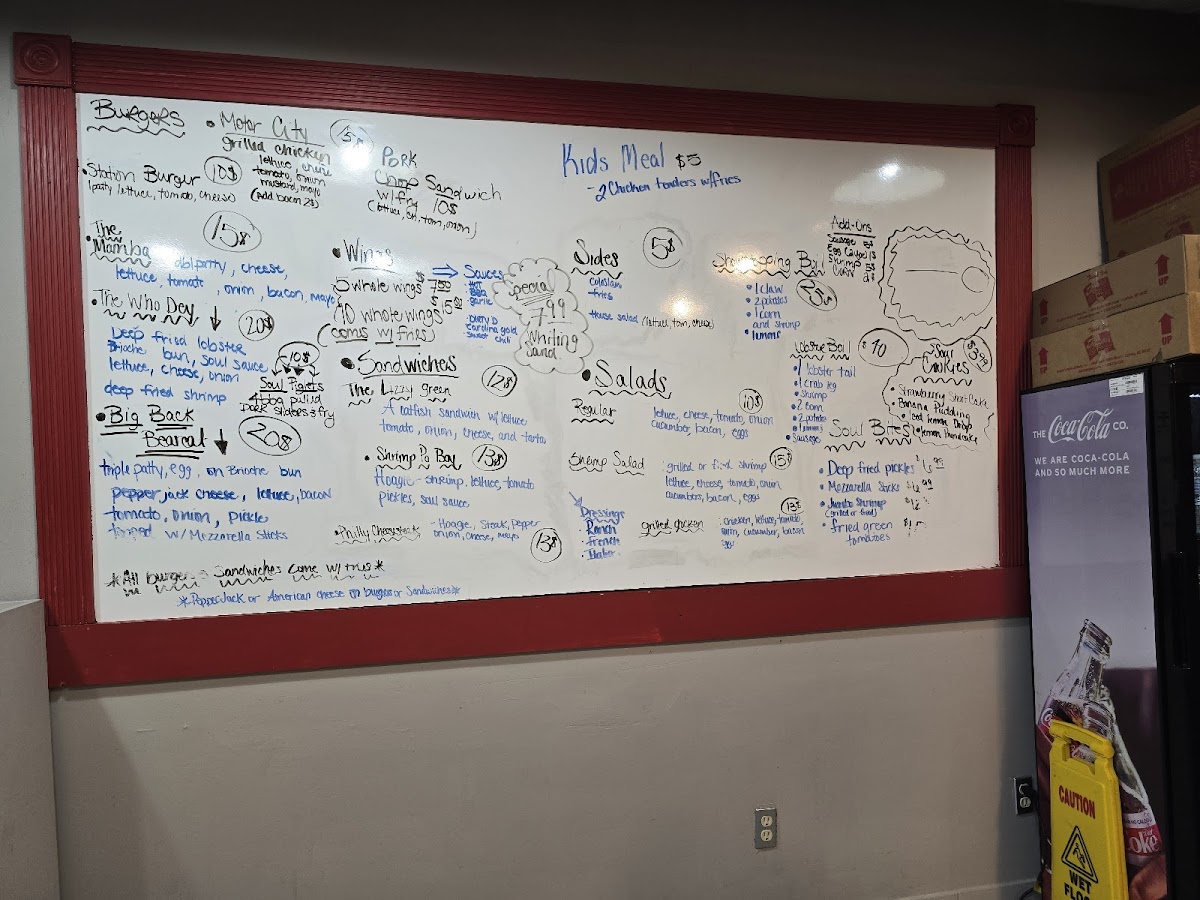 Burgers
• Motor City
grilled chicken
lettuce, cheese
tomato, onion
mustard, mayo
(Add bacon 2$)
• Station Burger 10$
(patty lettuce, tomato, cheese)
Pork
Chop Sandwich
w/fry 10$
Kids Meal $5
- 2 Chicken tenders w/fries
15$
The
• Mamba dbl patty, cheese,
lettuce, tomato, onion, bacon, mayo
• The Who Dey 20$
Deep fried lobster
Brioche bun, soul sauce
lettuce, cheese, onion
deep fried shrimp
10$
Soul Piglets
4 bbq pulled
pork sliders & fry
• Big Back
Bearcat 20$
triple patty, egg, on Brioche bun
pepper jack cheese, lettuce, bacon
tomato, onion, pickle
topped w/ Mozzarella Sticks
• Wings
5 whole wings
10 whole wings
(coms w/ fries)
Sauces
Hot
BBQ
garlic
Carolina gold
sweet chili
Special
7.99
Whiting
Sand
• Sandwiches
The Lizzy Green 12$
A catfish sandwich w/ lettuce
tomato, onion, cheese, and tartar
• Shrimp Po Boy 13$
Hoagie - shrimp, lettuce, tomato
pickles, soul sauce
• Philly Cheesesteak - Hoagie, Steak, Pepper
onion, cheese, mayo 13$
*All burgers & Sandwiches Come w/ fries*
*PepperJack or American cheese on burgers or Sandwiches*
Sides 5$
coleslaw
fries
House salad (lettuce, tom, cheese)
• Salads
Regular 10$
lettuce, cheese, tomato, onion
cucumber, bacon, eggs
Shrimp Salad 15$
: grilled or fried shrimp
lettuce, cheese, tomato, onion,
cucumbers, bacon, eggs
Dressings
Ranch
French
Italian
grilled chicken 13$
: chicken, lettuce, tomato,
onion, cucumber, bacon
egg
Boil
• 1 claw
• 2 potatoes
• 1 corn
and shrimp
Add-Ons
Sausage
Shrimp
Corn
Lobster Boil $40
• 1 lobster tail
• 1 crab leg
• shrimp
• 2 corn
• 2 potato
• Sausage
Soul
Cookies
• Strawberry Short Cake
• Banana Pudding
Soul Bites
• Deep fried pickles
• Mozzarella Sticks
• Jumbo Shrimp
(grilled or fried)
• fried green
tomatoes
UP
UP
THE Coca-Cola CO.
WE ARE COCA-COLA
AND SO MUCH MORE
CAUTION
WET
FLOOR